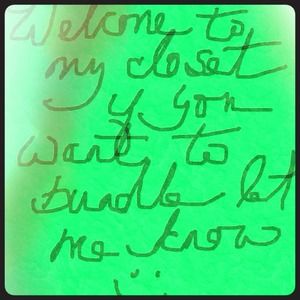 Welcome to
my closet
if you
want to
bundle let
me know